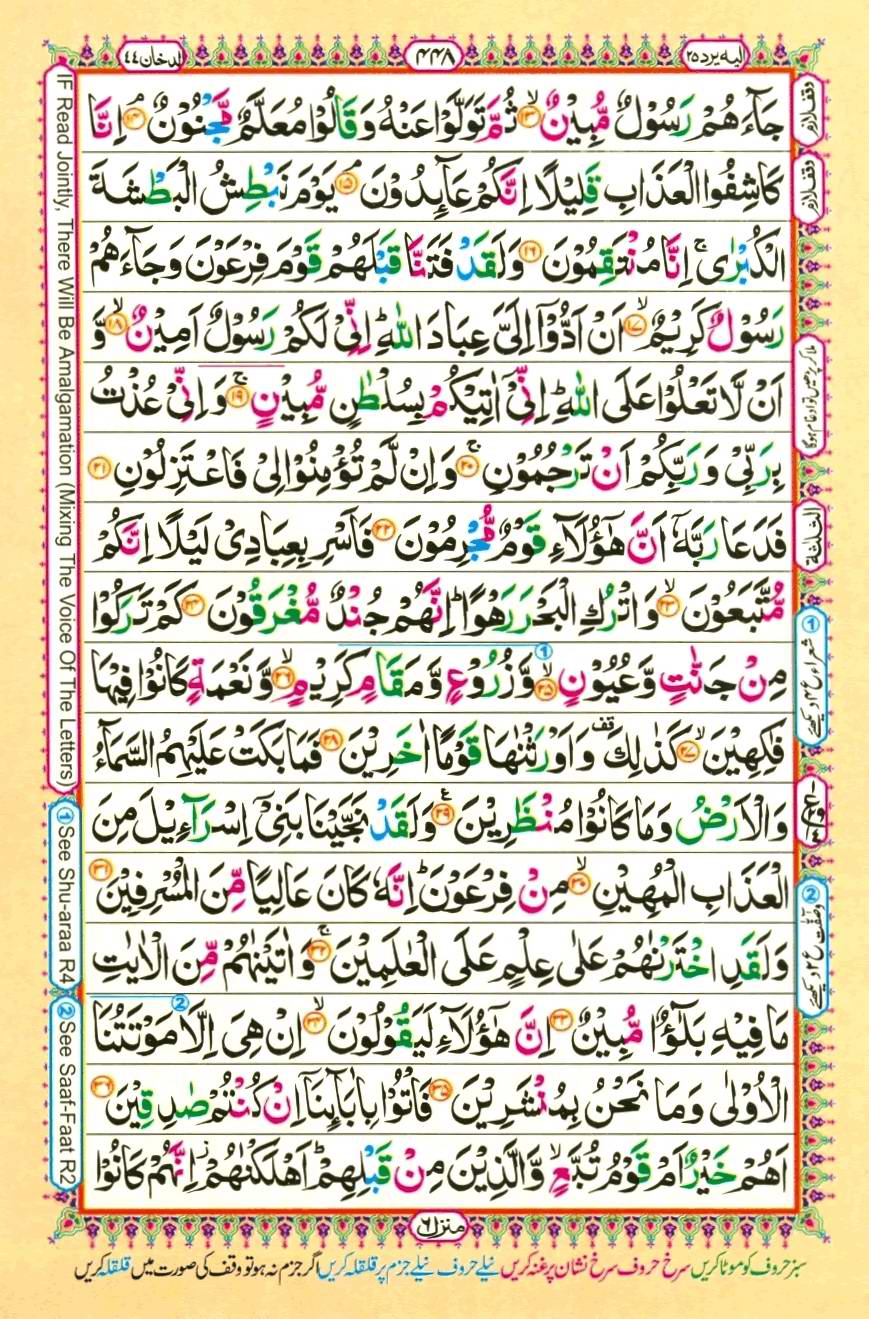 الدخان ٤٤
٤٤٨
اليه يرد ٢٥
جَآءَهُمْ رَسُوْلٌ مُّبِيْنٌ ۙ‏﴿۱۳﴾ ثُمَّ تَوَلَّوْا عَنْهُ وَقَالُوْا مُعَلَّمٌ مَّجْنُوْنٌ ۘ‏﴿۱۴﴾ اِنَّا
كَاشِفُوا الْعَذَابِ قَلِيْلًا اِنَّكُمْ عَآئِدُوْنَ ۘ‏﴿۱۵﴾ يَوْمَ نَبْطِشُ الْبَطْشَةَ
الْكُبْرٰى ۚ اِنَّا مُنْتَقِمُوْنَ ‏﴿۱۶﴾ وَلَقَدْ فَتَنَّا قَبْلَهُمْ قَوْمَ فِرْعَوْنَ وَجَآءَهُمْ
رَسُوْلٌ كَرِيْمٌ ۙ‏﴿۱۷﴾ اَنْ اَدُّوْۤا اِلَىَّ عِبَادَ اللّٰهِ ؕ اِنِّىْ لَكُمْ رَسُوْلٌ اَمِيْنٌ ۙ‏﴿۱۸﴾ وَّ
اَنْ لَّا تَعْلُوْا عَلَى اللّٰهِ ؕ اِنِّىْۤ اٰتِيْكُمْ بِسُلْطٰنٍ مُّبِيْنٍ ۚ‏﴿۱۹﴾ وَاِنِّىْ عُذْتُ
بِرَبِّىْ وَرَبِّكُمْ اَنْ تَرْجُمُوْنِ ۚ‏﴿۲۰﴾ وَاِنْ لَّمْ تُؤْمِنُوْا لِىْ فَاعْتَزِلُوْنِ ‏﴿۲۱﴾
فَدَعَا رَبَّهٗۤ اَنَّ هٰٓؤُلَآءِ قَوْمٌ مُّجْرِمُوْنَ ‏﴿۲۲﴾ فَاَسْرِ بِعِبَادِىْ لَيْلًا اِنَّكُمْ
مُّتَّبَعُوْنَ ۙ‏﴿۲۳﴾ وَاتْرُكِ الْبَحْرَ رَهْوًا ؕ اِنَّهُمْ جُنْدٌ مُّغْرَقُوْنَ ‏﴿۲۴﴾ كَمْ تَرَكُوْا
مِنْ جَنّٰتٍ وَّعُيُوْنٍ ۙ‏﴿۲۵﴾ وَّزُرُوْعٍ وَّمَقَامٍ كَرِيْمٍ ۙ‏﴿۲۶﴾ وَّنَعْمَةٍ كَانُوْا فِيْهَا
فٰكِهِيْنَ ۙ‏﴿۲۷﴾ كَذٰلِكَ قف وَاَوْرَثْنٰهَا قَوْمًا اٰخَرِيْنَ ‏﴿۲۸﴾ فَمَا بَكَتْ عَلَيْهِمُ السَّمَآءُ
وَالْاَرْضُ وَمَا كَانُوْا مُنْظَرِيْنَ ‏﴿۲۹﴾ وَلَقَدْ نَجَّيْنَا بَنِىْۤ اِسْرَآءِيْلَ مِنَ
الْعَذَابِ الْمُهِيْنِ ۙ‏﴿۳۰﴾ مِنْ فِرْعَوْنَ ؕ اِنَّهٗ كَانَ عَالِيًا مِّنَ الْمُسْرِفِيْنَ ‏﴿۳۱﴾
وَلَقَدِ اخْتَرْنٰهُمْ عَلٰى عِلْمٍ عَلَى الْعٰلَمِيْنَ ۚ‏﴿۳۲﴾ وَاٰتَيْنٰهُمْ مِّنَ الْاٰيٰتِ
مَا فِيْهِ بَلٰٓؤٌا مُّبِيْنٌ ‏﴿۳۳﴾ اِنَّ هٰٓؤُلَآءِ لَيَقُوْلُوْنَ ۙ‏﴿۳۴﴾ اِنْ هِىَ اِلَّا مَوْتَتُنَا
الْاُوْلٰى وَمَا نَحْنُ بِمُنْشَرِيْنَ ‏﴿۳۵﴾ فَاْتُوْا بِاٰبَآئِنَاۤ اِنْ كُنْتُمْ صٰدِقِيْنَ ‏﴿۳۶﴾
اَهُمْ خَيْرٌ اَمْ قَوْمُ تُبَّعٍ ۙ وَّالَّذِيْنَ مِنْ قَبْلِهِمْ ؕ اَهْلَكْنٰهُمْ ز اِنَّهُمْ كَانُوْا
وقف لازم
وقف لازم
ملا کر پڑھیں تو ادغام ہوگا
الثلثة
① شعراء ع ۴ دیکھئے
② وصٰفّٰت ع ۲ دیکھئے
IF Read Jointly, There Will Be Amalgamation (Mixing The Voice Of The Letters)
① See Shu-araa R4
② See Saaf-Faat R2
منزل ٦
سبز حروف کو موٹا کریں سرخ حروف سرخ نشان پر غنہ کریں نیلے حروف نیلے جزم پر قلقلہ کریں اگر جزم نہ ہو تو وقف کی صورت میں قلقلہ کریں